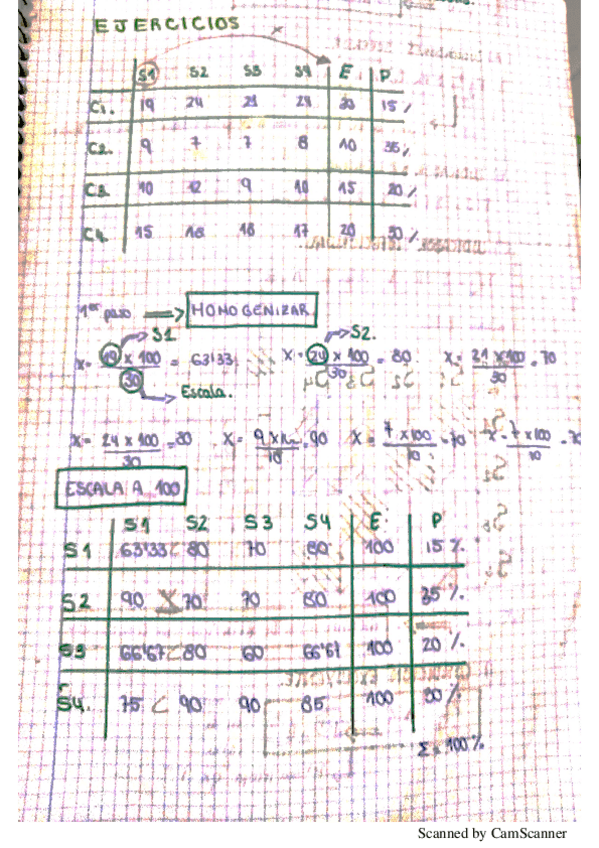 EJERCICIOS
S1 S2 S3 S4 E P
C1. 19 24 21 24 30 15%
C2. 9 7 7 8 10 35%
C3. 10 12 9 10 15 20%
C4. 15 18 18 17 20 30%
1er paso HOMOGENIZAR
S1 S2.
x= 19 x 100 / 30 = 63'33 x= 24 x 100 / 30 = 80 x= 21 x 100 / 30 = 70
Escala.
x= 24 x 100 / 30 = 80 x= 9 x / 10 = 90 x= 7 x 100 / 10 = 70 x= 7 x 100 / 10 = 70
ESCALA A 100
S1 S2 S3 S4 E P
S1 63'33 < 80 70 80 100 15%
S2 90 70 70 80 100 35%
S3 66'67 < 80 60 66'67 100 20%
S4. 75 < 90 90 85 100 30%
Σ = 100%
Scanned by CamScanner